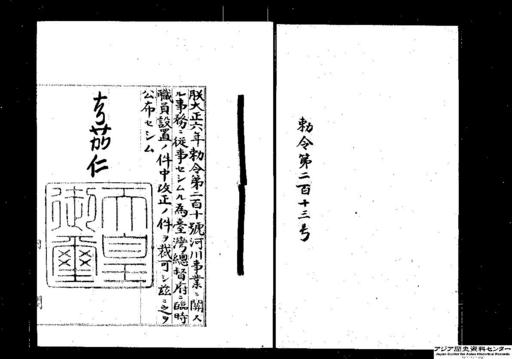 勅令第二百十三号
朕大正六年勅令第二百十號河川事業ニ關ス
ル事務ニ從事セシムル為臺灣總督府ニ臨時
職員設置ノ件中改正ノ件ヲ裁可シ茲ニ之ヲ
公布セシム
嘉仁
天皇
御璽
アジア歴史資料センター
Japan Center for Asian Historical Records